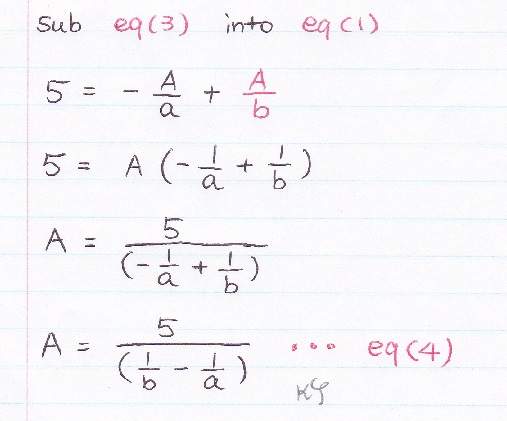 sub eq(3) into eq(1)
5 = - A/a + A/b
5 = A (- 1/a + 1/b)
A = 5/(- 1/a + 1/b)
A = 5/(1/b - 1/a) ... eq(4)